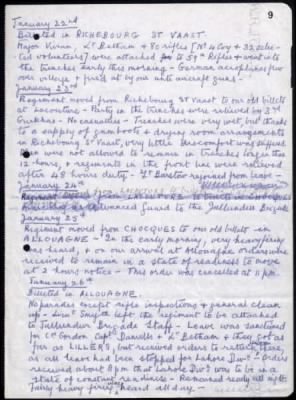 9
January 22nd
Billeted in RICHEBOURG ST VAAST.
Major Vivian, Lt Betham & 80 rifles [No 4 Coy & 32 selec-
ted volunteers] were attached to 59th Rifles & went into
the trenches early this morning - German aeroplanes flew
over village & fired at by our anti aircraft guns -
January 23rd
Regiment moved from Richebourg St Vaast to our old billets
at Lacouture - Party in the trenches were relieved by 2nd
Gurkhas - No casualties - Trenches were very wet but thanks
to a supply of gumboots & drying room arrangements
in Richebourg St Vaast, very little discomfort was suffered
Men were not allowed to remain in trenches longer than
12 hours, & regiments in the front line were relieved
after 48 hours duty - Lt Barton rejoined from leave -
January 24th
Regiment moved from LACOUTURE to billets in CHOCQUES
Advanced Guard to the Jullundur Brigade
January 25th
Regiment moved from CHOCQUES to our old billets in
ALLOUAGNE - In the early morning, very heavy firing
was heard, & on our arrival at Allouagne orders were
received to remain in a state of readiness to move
at 2 hours notice - This order was cancelled at 11 pm.
January 26th
Billeted in ALLOUAGNE.
No parades except rifle inspections & general clean
up - Lieut Smyth left the regiment to be attached
to Jullundur Brigade Staff - Leave was sanctioned
for Cn Gordon Capt Daniell & Lt Betham & they got as
far as LILLERS, but received orders to return there,
as all leave had been stopped for Lahore Divn - Orders
received about 8 pm that Lahore Divn was to be in a
state of constant readiness - Remained ready all night
Fairly heavy firing heard all day -